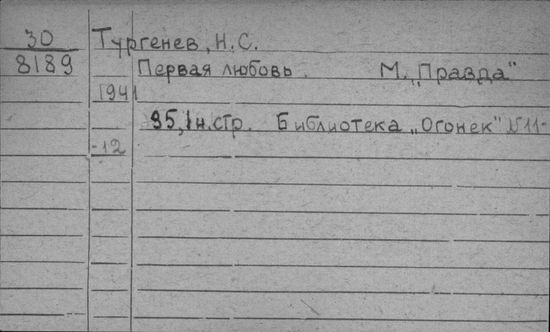 30 Тургенев, Н.С.
8189 Первая любовь. М. „Правда"
1941
95, 1н.стр. Библиотека „Огонек" №11-
-12